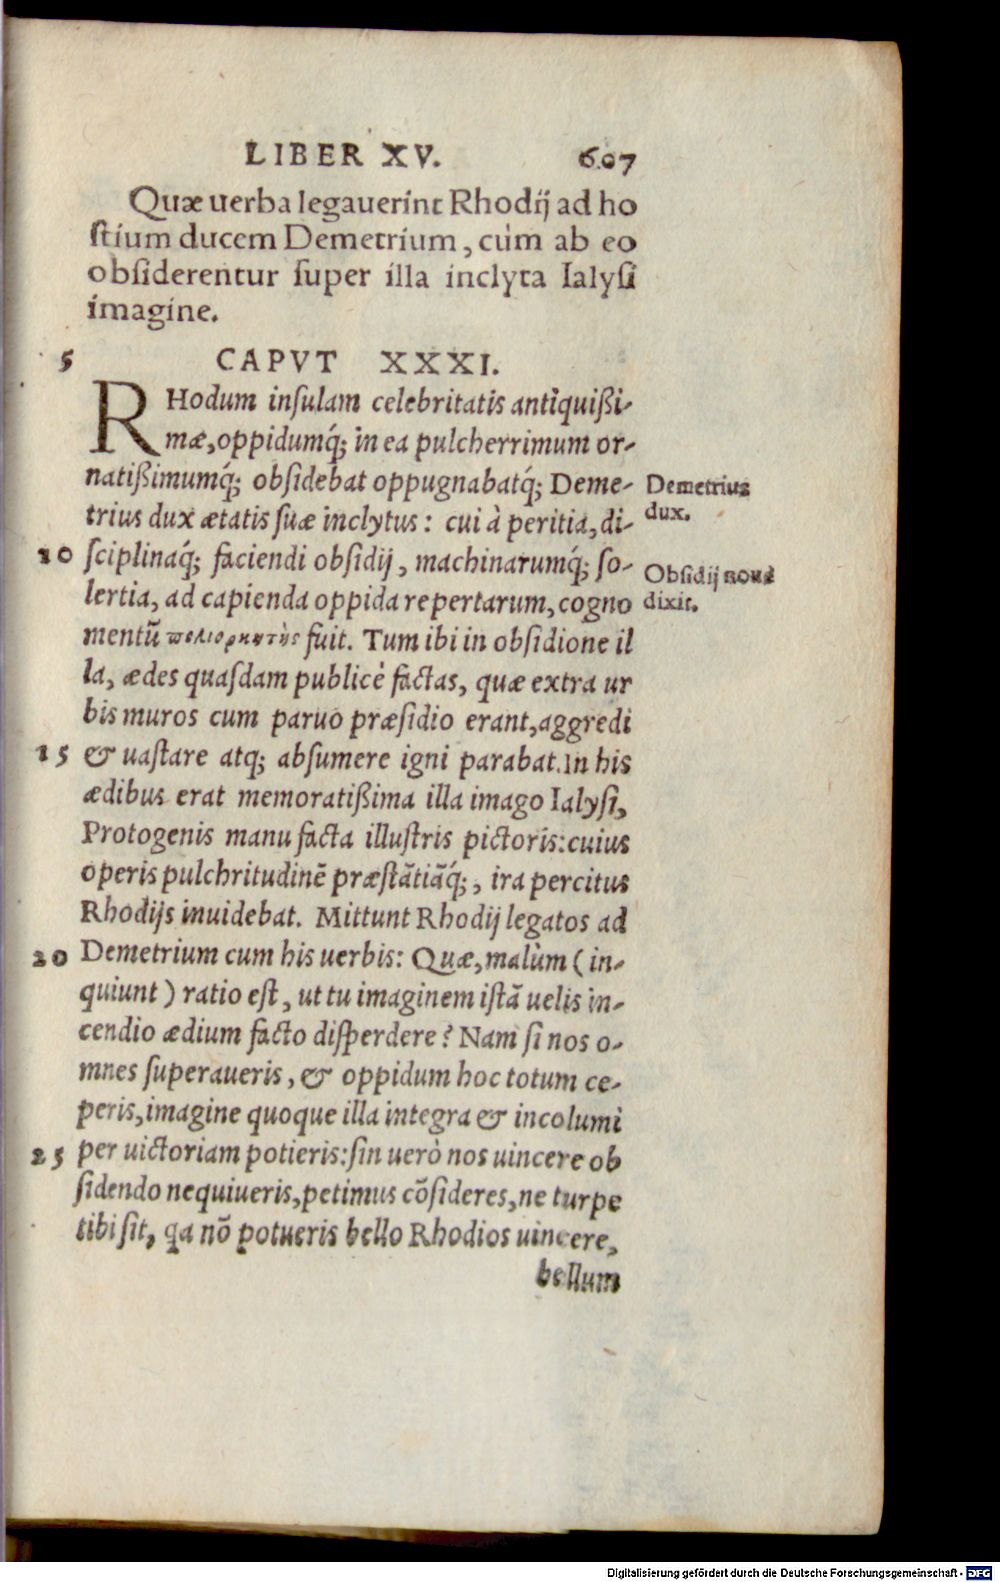 LIBER XV. 607
Quæ uerba legauerint Rhodij ad ho
ſtium ducem Demetrium, cùm ab eo
obſiderentur ſuper illa inclyta Ialyſi
imagine.
5 CAPVT XXXI.
RHodum inſulam celebritatis antiquißi-
mæ, oppidumq́; in ea pulcherrimum or-
natißimumq́; obſidebat oppugnabatq́; Deme-
Demetrius
trius dux ætatis ſuæ inclytus: cui à peritia, di-
dux.
10 ſciplinaq́; faciendi obſidij, machinarumq́; ſo-
Obſidij
lertia, ad capienda oppida repertarum, cogno
dixit.
mentũ πολιορκητὴς fuit. Tum ibi in obſidione il
la, ædes quaſdam publicè factas, quæ extra ur
bis muros cum paruo præſidio erant, aggredi
15 & uaſtare atq; abſumere igni parabat. In his
ædibus erat memoratißima illa imago Ialyſi,
Protogenis manu facta illuſtris pictoris: cuius
operis pulchritudinẽ præſtãtiãq́;, ira percitus
Rhodijs inuidebat. Mittunt Rhodij legatos ad
20 Demetrium cum his uerbis: Quæ, malùm (in-
quiunt) ratio eſt, ut tu imaginem iſtã uelis in-
cendio ædium facto diſperdere? Nam ſi nos o-
mnes ſuperaueris, & oppidum hoc totum ce-
peris, imagine quoque illa integra & incolumi
25 per uictoriam potieris: ſin uerò nos uincere ob
ſidendo nequiueris, petimus cõſideres, ne turpe
tibi ſit, qa nõ potueris bello Rhodios uincere,
bellum
Digitalisierung gefördert durch die Deutsche Forschungsgemeinschaft - DFG